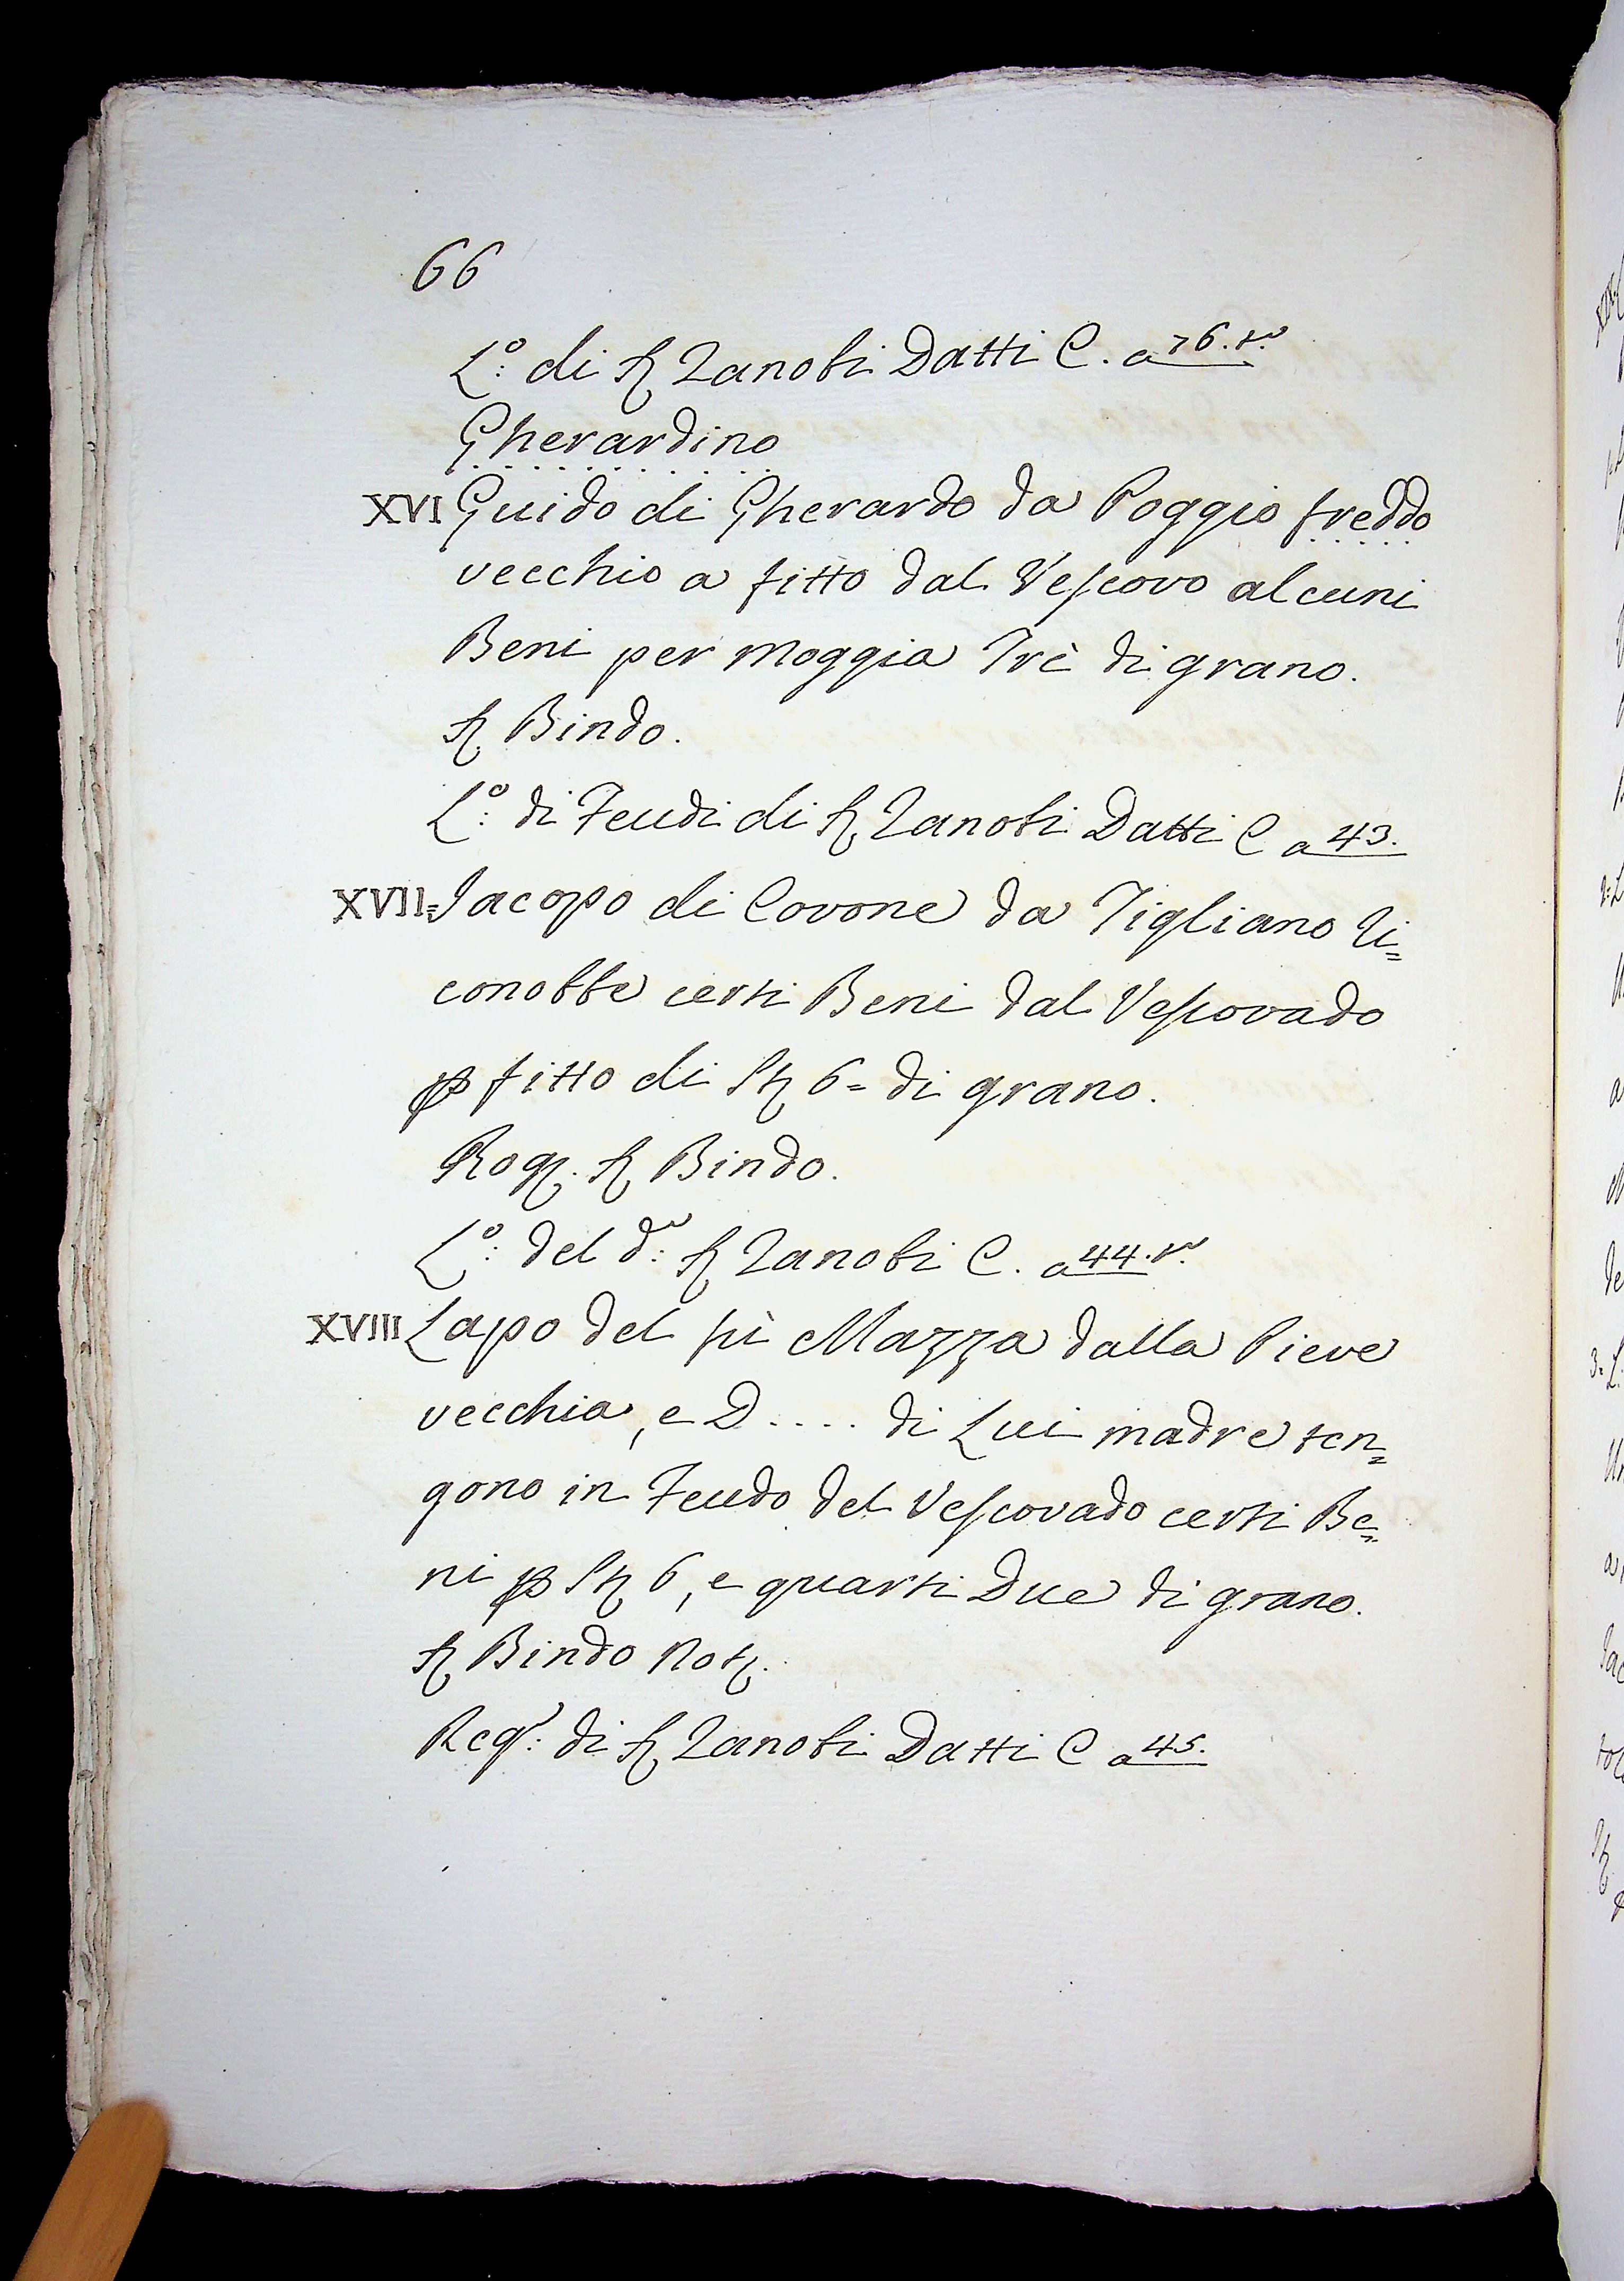 66
L.o di S. Zanobi Datti C. a 76. t.o
Gherardino
XVI Guido di Gherardo da Poggio freddo
vecchio a fitto dal Vescovo alcuni
Beni per Moggia Trè di grano.
S. Bindo.
L.o di Feudi di S. Zanobi Datti C a 43.
XVII= Jacopo di Covone da Tigliano Ri=
conobbe certi Beni dal Vescovado
p fitto di St. 6= di grano.
Rog. S. Bindo.
L.o del d.o S. Zanobi C. a 44. t.o
XVIII Lapo del fù Mazza dalla Pieve
vecchia, e D.... di Lui madre ten=
gono in Feudo del Vescovado certi Be=
ni p St. 6, e quarti Due di grano.
S. Bindo Not.
Reg.o di S. Zanobi Datti C a 45.